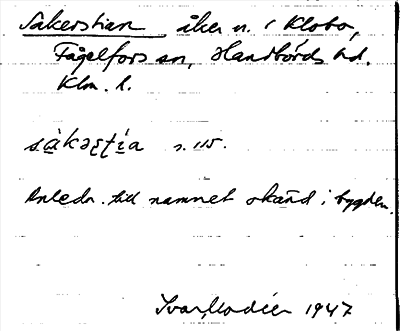 Sakerstian åker n. i Klobo,
Fågelfors sn, Handbörds hd.
Klm. l.
s. 115.
Anledn. till namnet okänd i bygden.
Ivar Modéer 1947